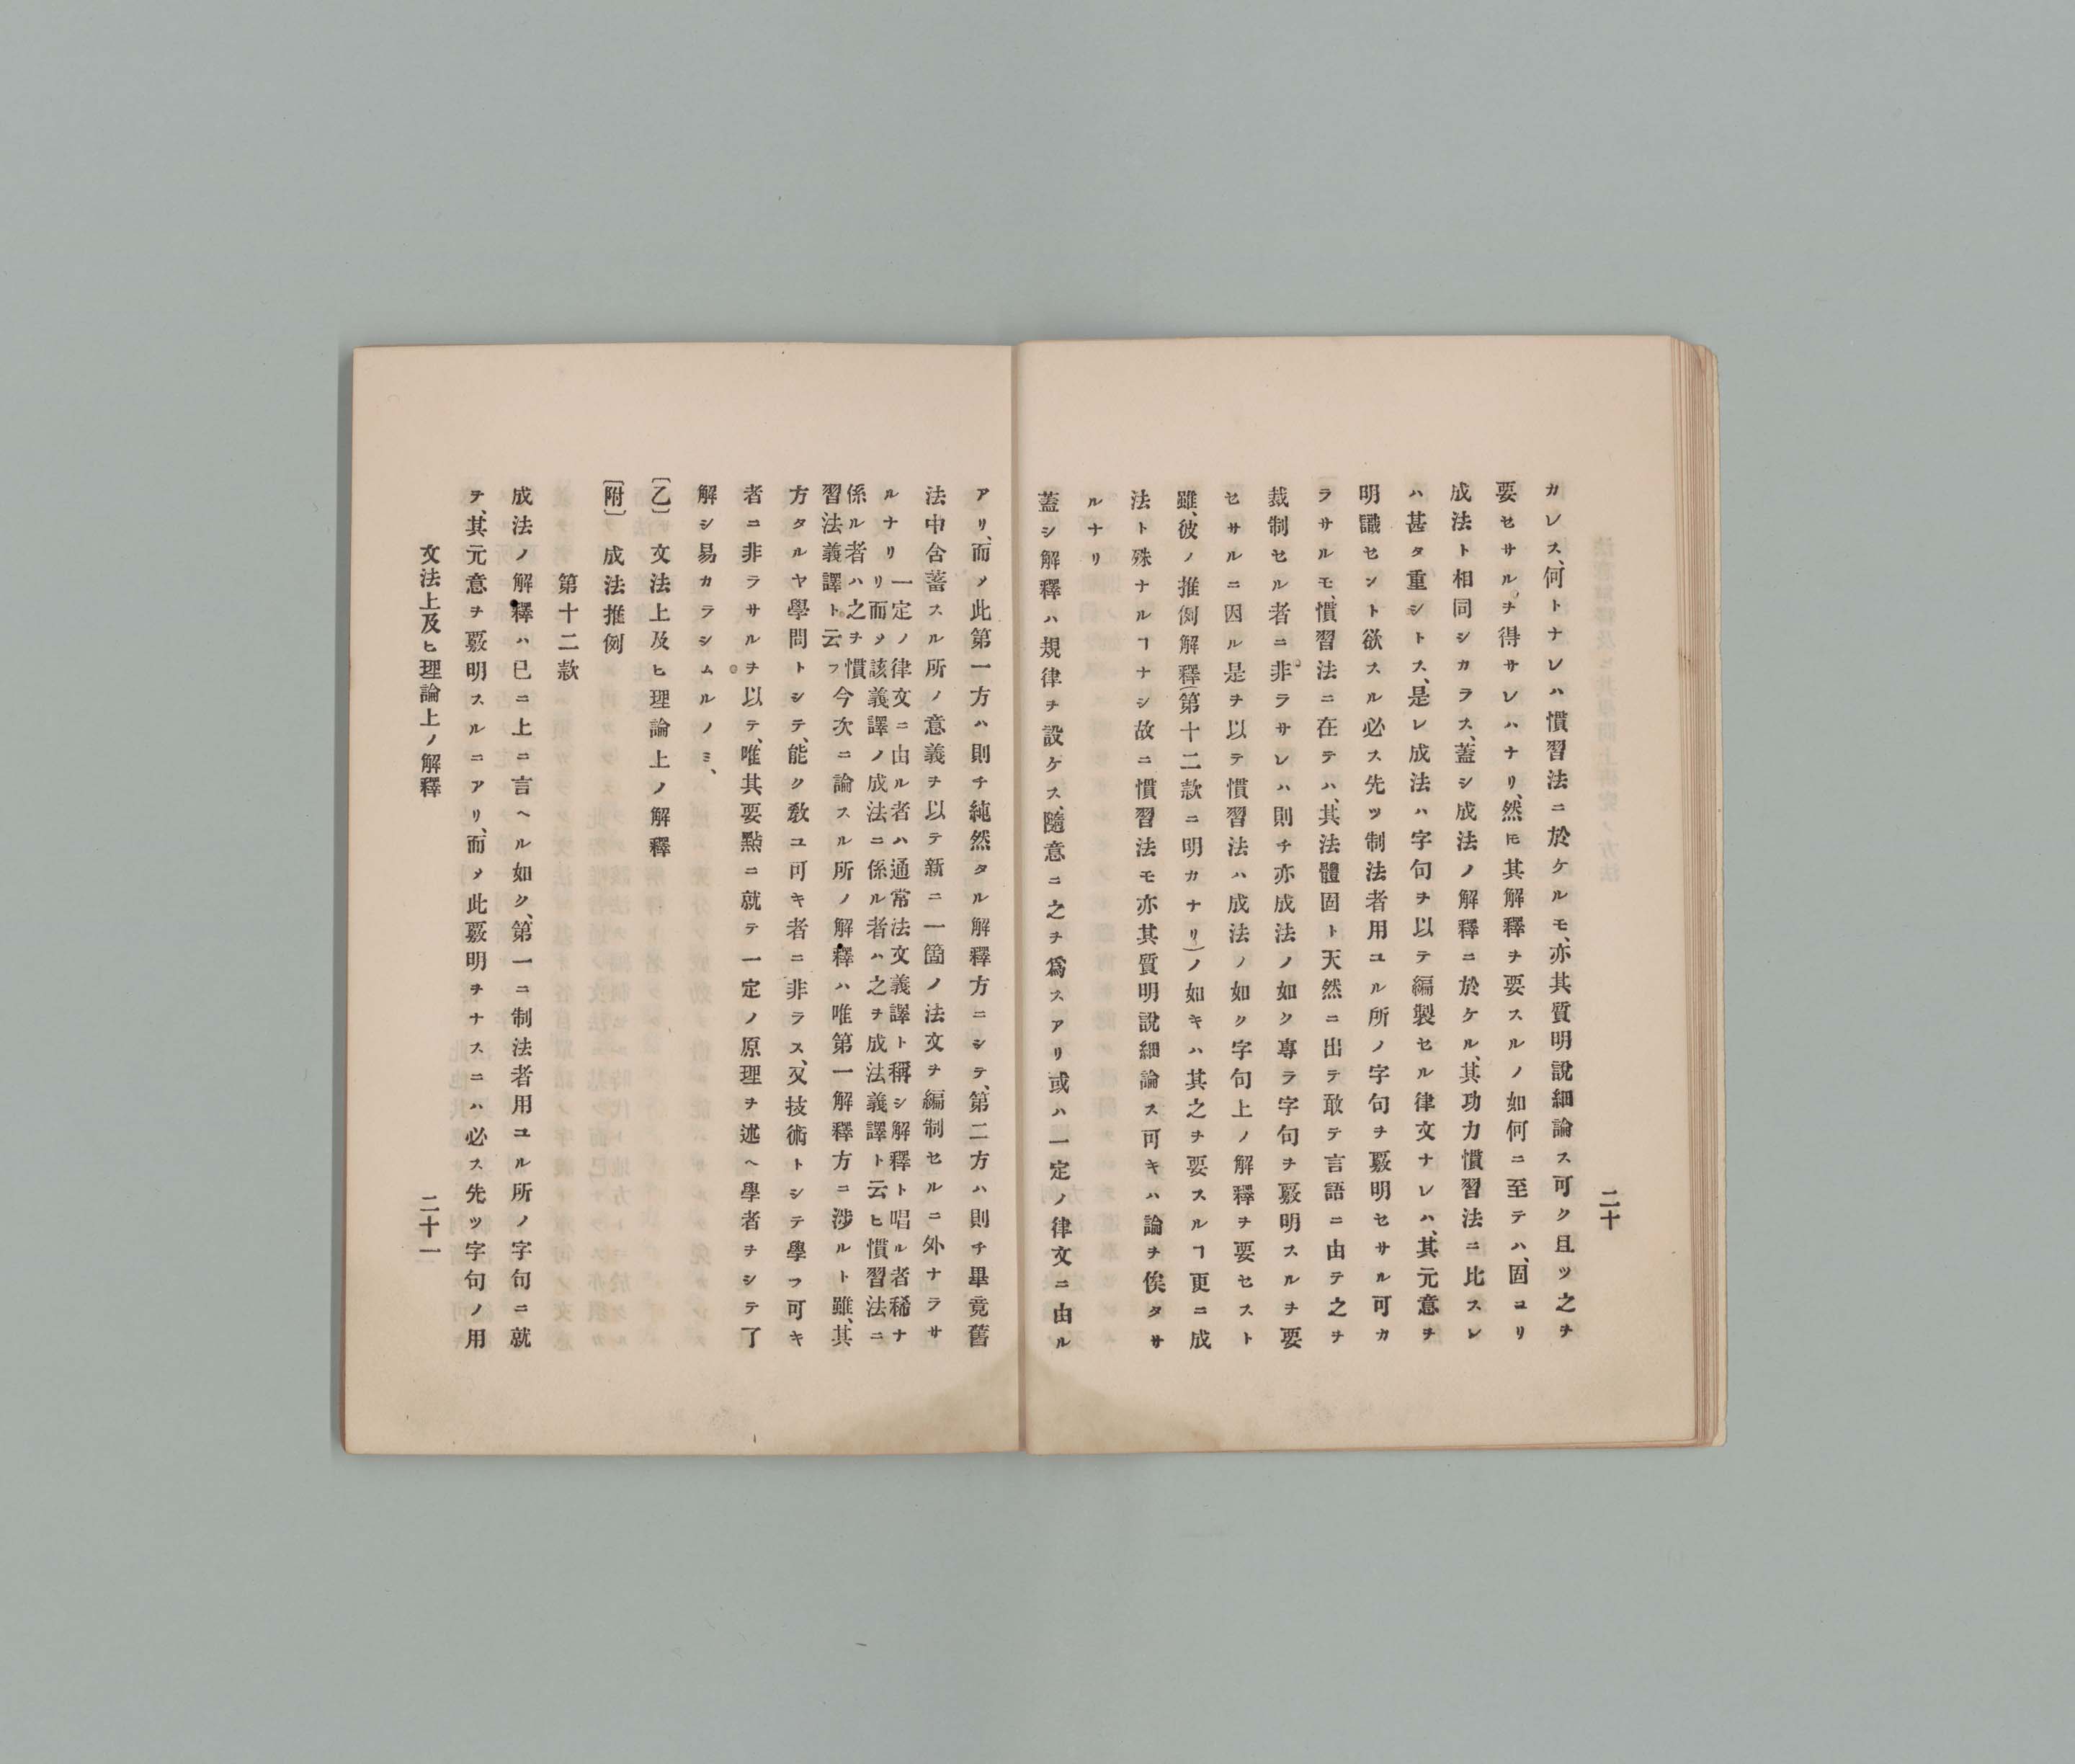 二十
カレス、何トナレハ慣習法ニ於ケルモ、亦其質明說細論ス可ク且ツ之ヲ
要セサルヲ得サレハナリ、然𪜈其解釋ヲ要スルノ如何ニ至テハ、固ヨリ
成法ト相同シカラス、蓋シ成法ノ解釋ニ於ケル、其功力慣習法ニ比スレ
ハ甚タ重シトス、是レ成法ハ字句ヲ以テ編製セル律文ナレハ、其元意ヲ
明識セント欲スル必ス先ツ制法者用ユル所ノ字句ヲ覈明セサル可カ
ラサルモ、慣習法ニ在テハ、其法體固ト天然ニ出テ敢テ言語ニ由テ之ヲ
裁制セル者ニ非ラサレハ則チ亦成法ノ如ク專ラ字句ヲ覈明スルヲ要
セサルニ因ル是ヲ以テ慣習法ハ成法ノ如ク字句上ノ解釋ヲ要セスト
雖、彼ノ推例解釋(第十二款ニ明カナリ)ノ如キハ其之ヲ要スルヿ更ニ成
法ト殊ナルヿナシ故ニ慣習法モ亦其質明說細論ス可キハ論ヲ俟タサ
ルナリ
蓋シ解釋ハ規律ヲ設ケス、隨意ニ之ヲ爲スアリ或ハ一定ノ律文ニ由ル
アリ、而〆此第一方ハ則チ純然タル解釋方ニシテ、第二方ハ則チ畢竟舊
法中含蓄スル所ノ意義ヲ以テ新ニ一箇ノ法文ヲ編制セルニ外ナラサ
ルナリ 一定ノ律文ニ由ル者ハ通常法文義譯ト稱シ解釋ト唱ル者稀ナ
リ而〆該義譯ノ成法ニ係ル者ハ之ヲ成法義譯ト云ヒ慣習法ニ
係ル者ハ之ヲ慣
習法義譯ト云フ 今次ニ論スル所ノ解釋ハ唯第一解釋方ニ涉ルト雖、其
方タルヤ學問トシテ、能ク敎ユ可キ者ニ非ラス、又技術トシテ學フ可キ
者ニ非ラサルヲ以テ、唯其要點ニ就テ一定ノ原理ヲ述ヘ學者ヲシテ了
解シ易カラシムルノミ、
〔乙〕 文法上及ヒ理論上ノ解釋
〔附〕 成法推例
第十二款
成法ノ解釋ハ已ニ上ニ言ヘル如ク、第一ニ制法者用ユル所ノ字句ニ就
テ、其元意ヲ覈明スルニアリ、而〆此覈明ヲナスニハ必ス先ツ字句ノ用
文法上及ヒ理論上ノ解釋
二十一